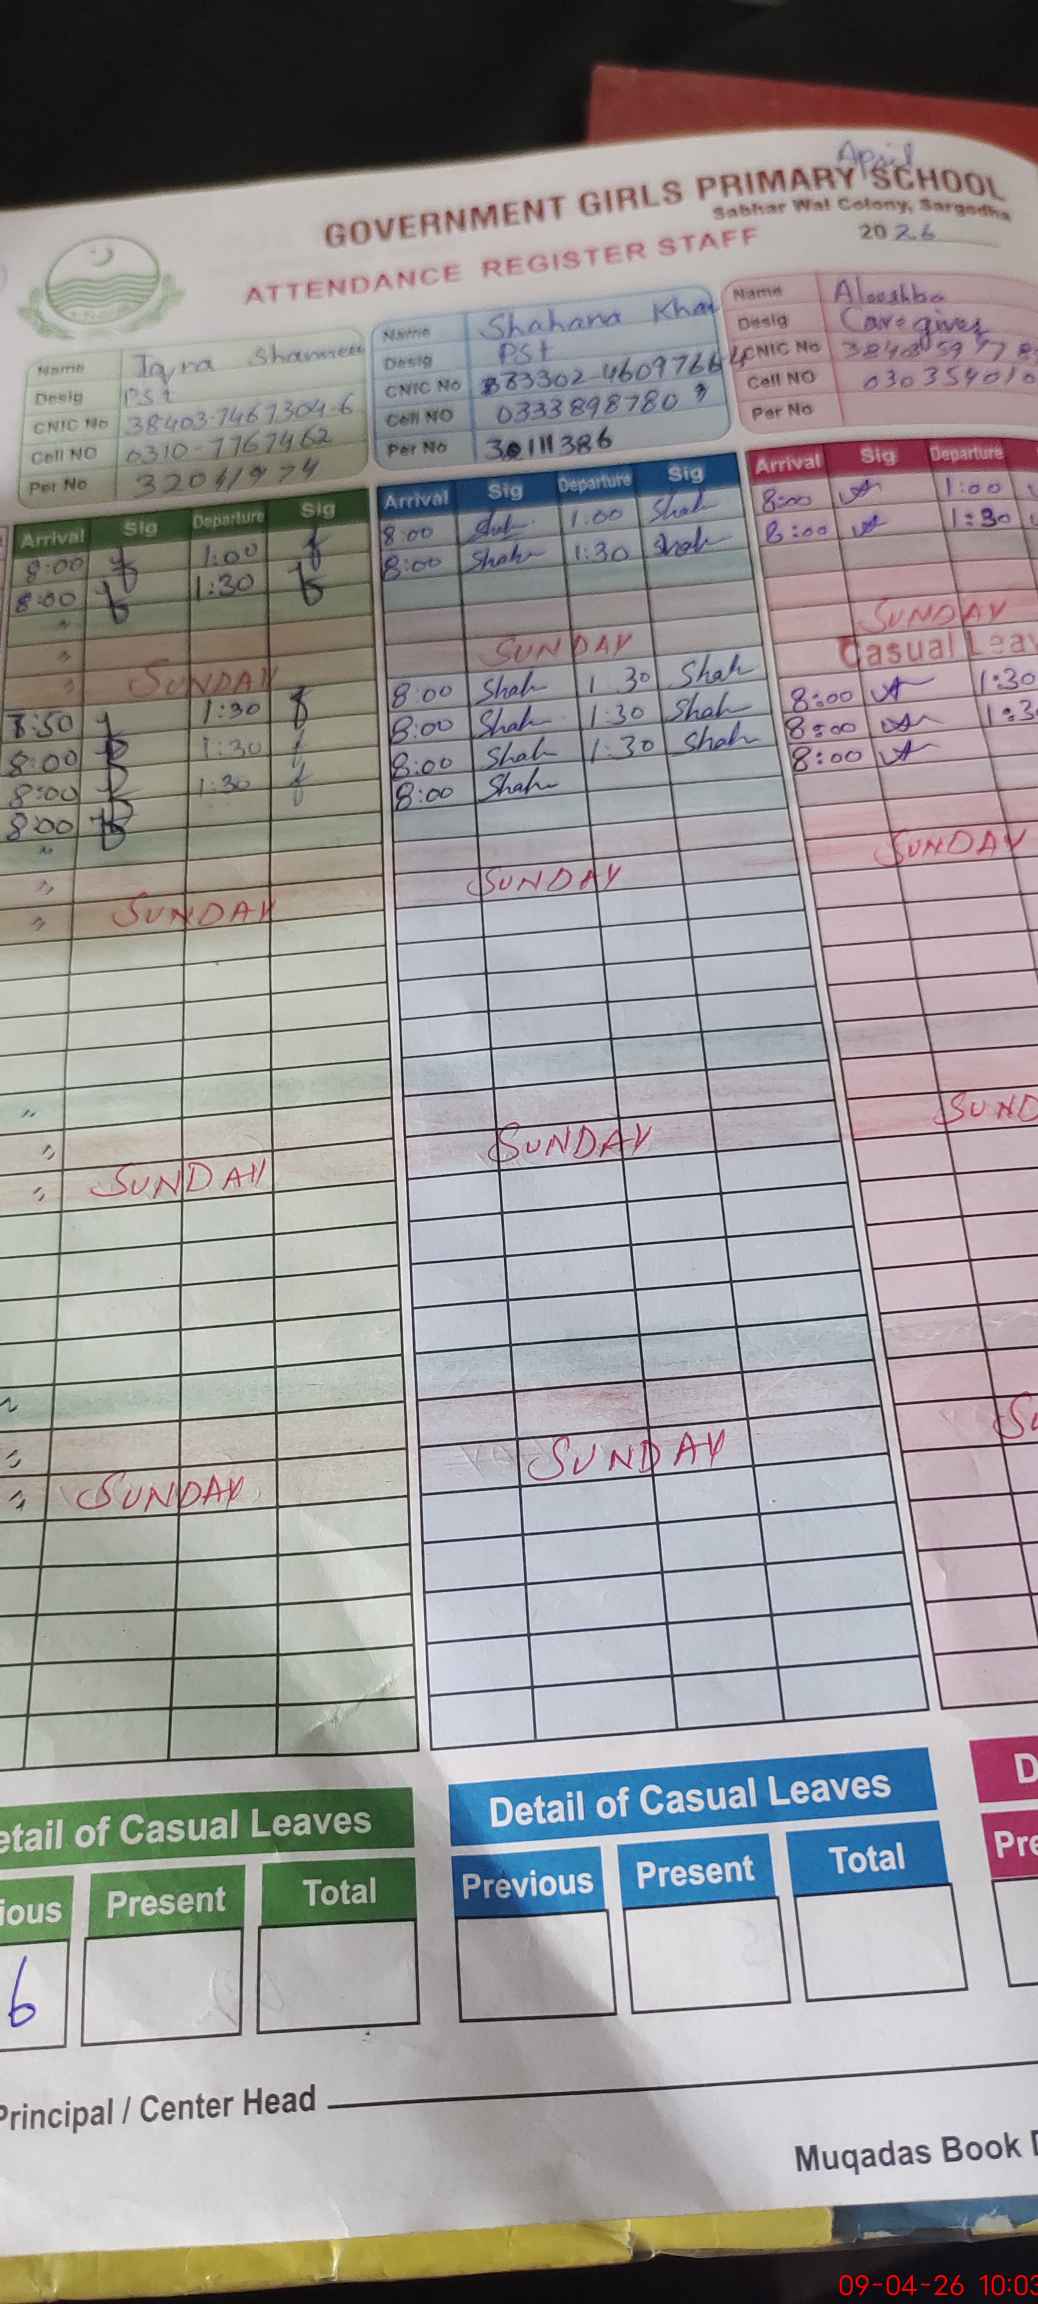 April
GOVERNMENT GIRLS PRIMARY SCHOOL
Sabhar Wal Colony, Sargodha
ATTENDANCE REGISTER STAFF
2026
Name Iqra
Desig PSt
CNIC No 38403-7467304-6
Cell NO 0310-7767462
Per No
Name Shahana Khan
Desig PSt
CNIC No
Cell NO
Per No
Name
Desig Caregiver
CNIC No
Cell NO
Per No
Arrival Sig Departure Sig
8:00 1:00
8:00 1:30
SUNDAY
1:30
8:00 1:30
8:00 1:30
8:00
SUNDAY
SUNDAY
SUNDAY
Arrival Sig Departure Sig
8:00 1:00 Shah
8:00 Shah 1:30 Shah
SUNDAY
8:00 Shah 1:30 Shah
8:00 Shah 1:30 Shah
8:00 Shah 1:30 Shah
8:00 Shah
SUNDAY
SUNDAY
SUNDAY
Arrival Sig Departure
8:00 1:00
8:00 1:30
SUNDAY
Casual Leav
8:00 1:30
8:00 1:3
8:00
SUNDAY
SUND
Su
etail of Casual Leaves
ious Present Total
6
Detail of Casual Leaves
Previous Present Total
D
Pre
Principal / Center Head
Muqadas Book D
09-04-26 10:03